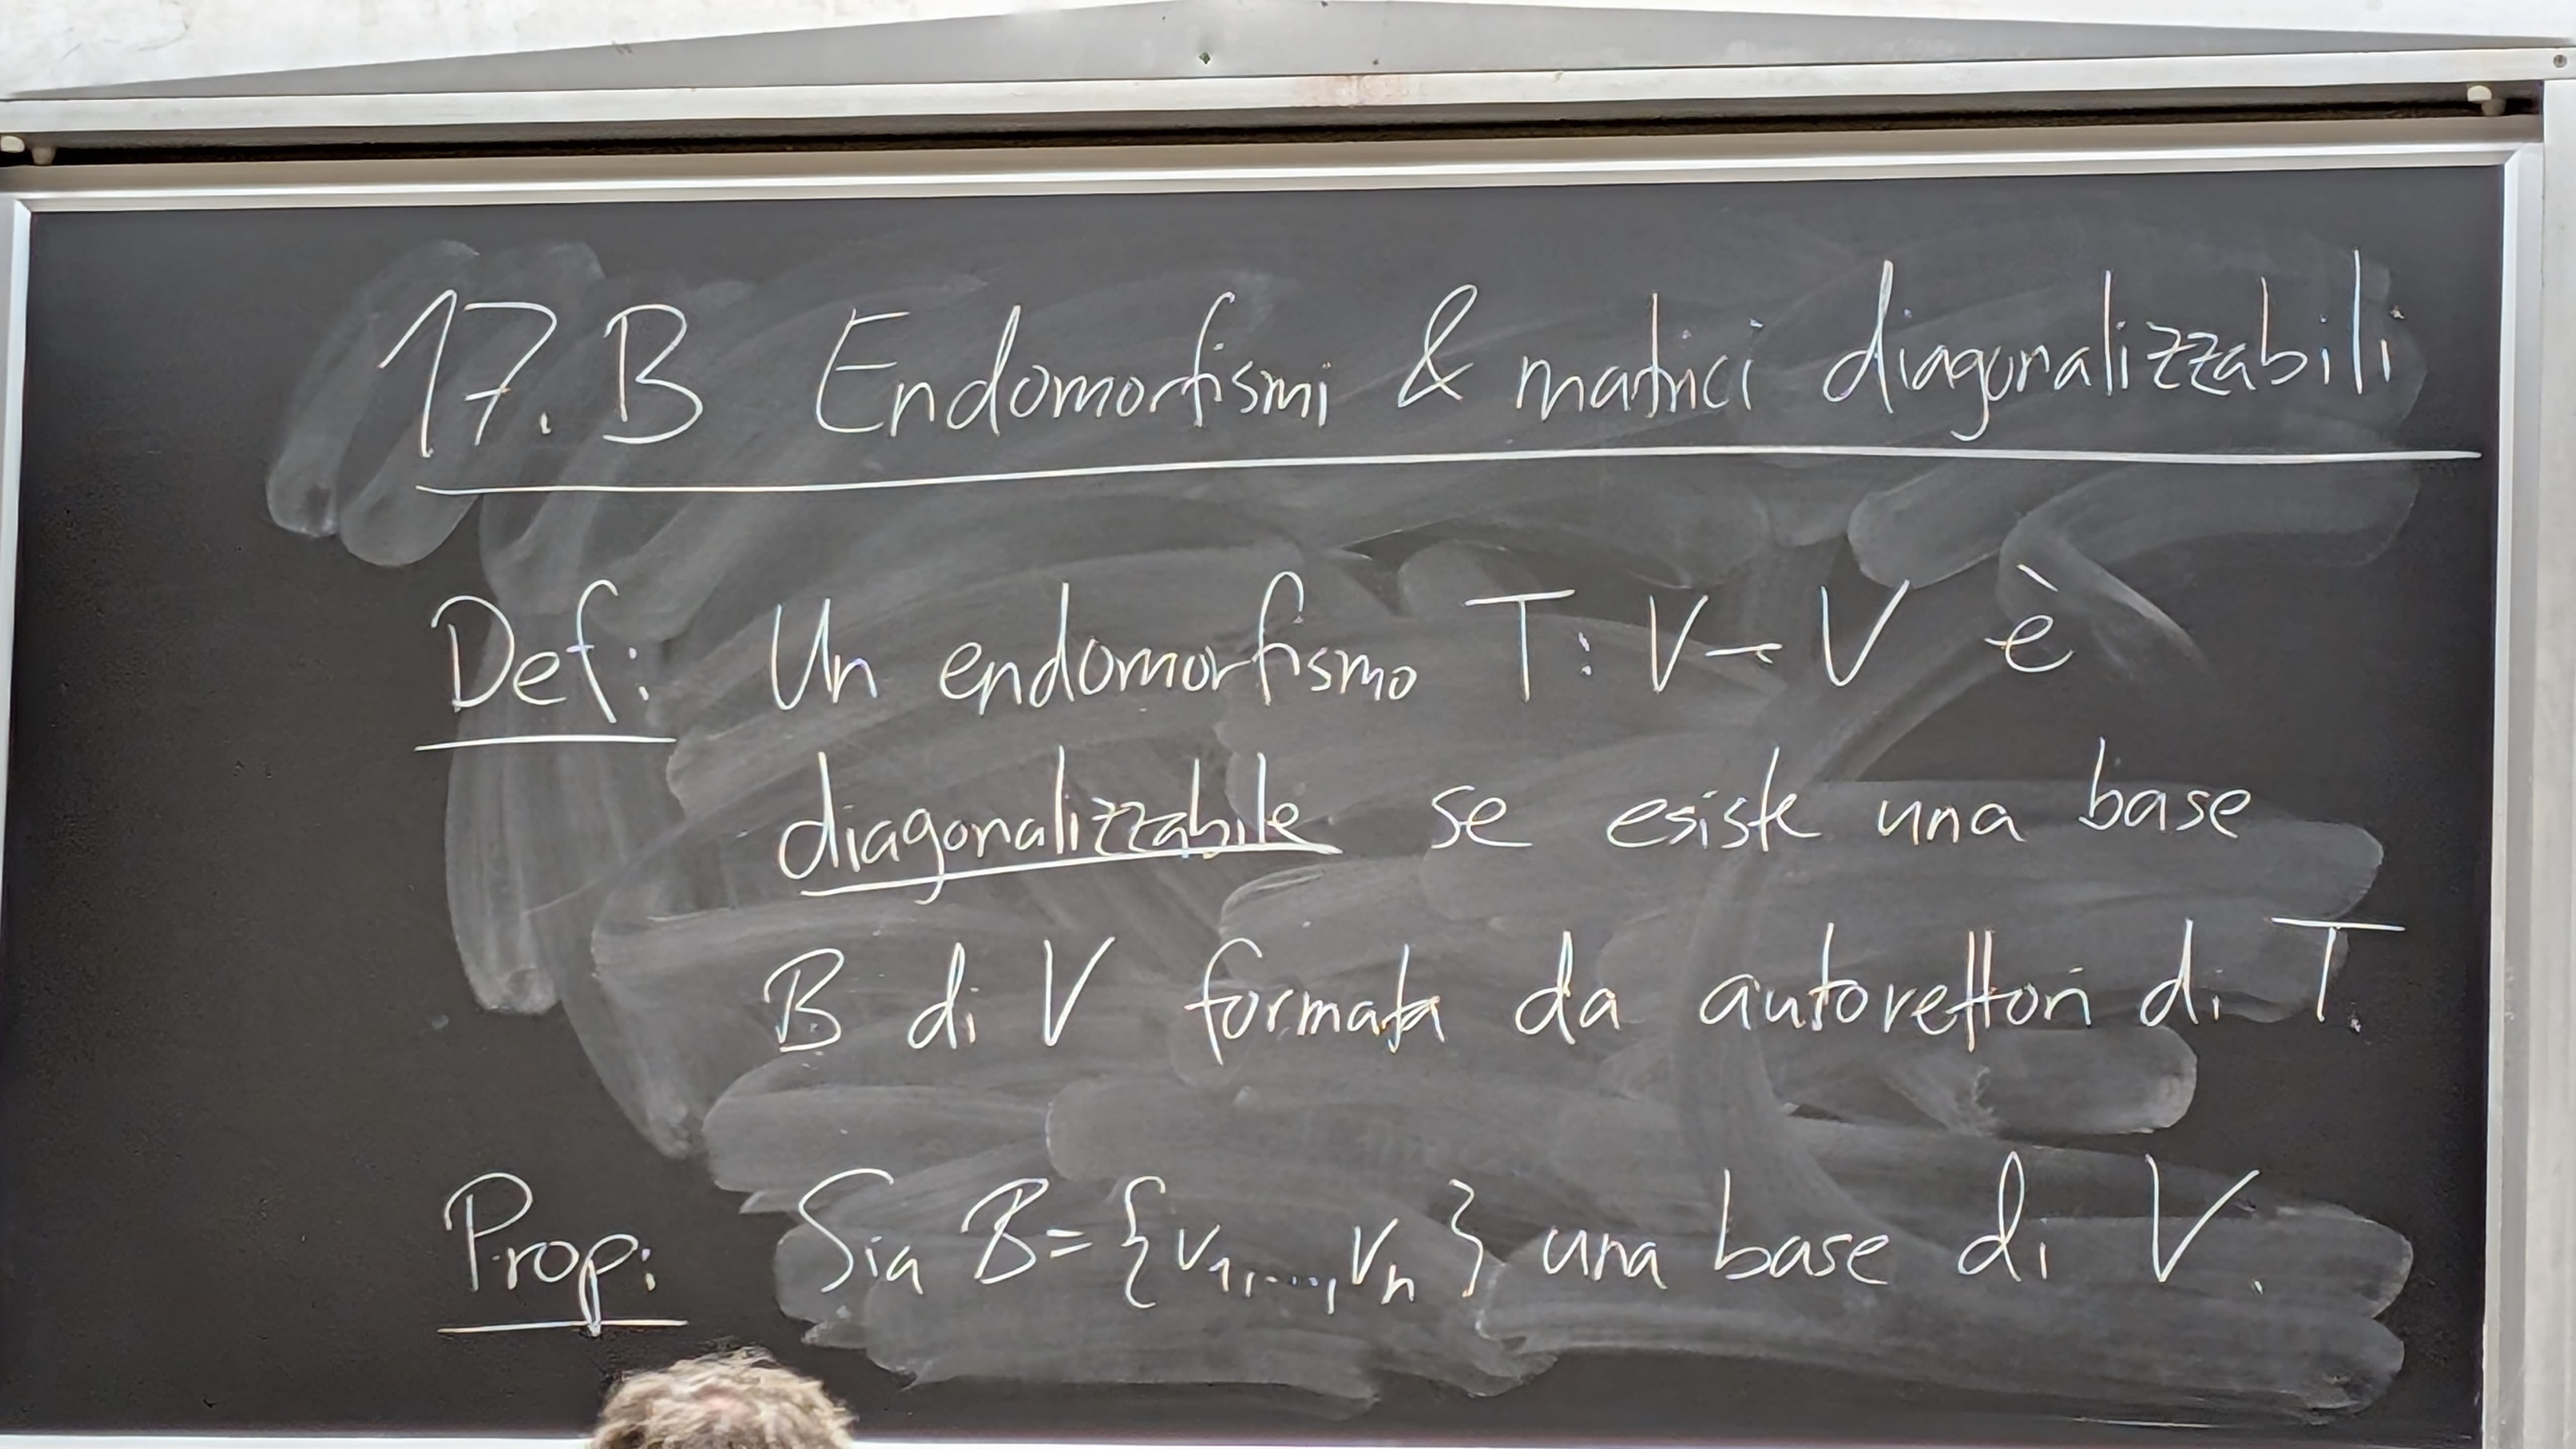 17.B Endomorfismi & matrici diagonalizzabili
Def: Un endomorfismo T: V → V è
diagonalizzabile se esiste una base
B di V formata da autovettori di T.
Prop: Sia B = {v₁,...,vₙ} una base di V.